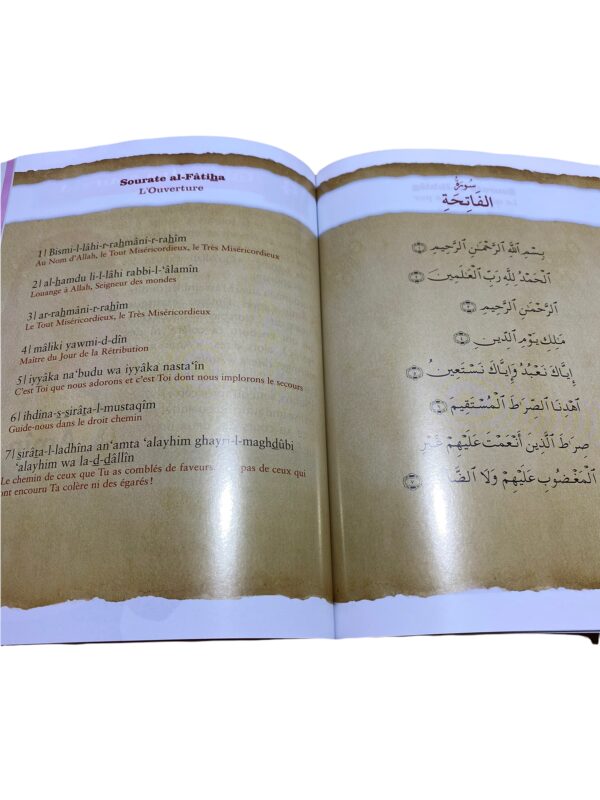 Sourate al-Fâtiḥa
L'Ouverture
1| Bismi-l-lâhi-r-raḥmâni-r-raḥîm
Au Nom d'Allah, le Tout Miséricordieux, le Très Miséricordieux
2| al-ḥamdu li-l-lâhi rabbi-l-'âlamîn
Louange à Allah, Seigneur des mondes
3| ar-raḥmâni-r-raḥîm
Le Tout Miséricordieux, le Très Miséricordieux
4| mâliki yawmi-d-dîn
Maître du Jour de la Rétribution
5| iyyâka na'budu wa iyyâka nasta'în
C'est Toi que nous adorons et c'est Toi dont nous implorons le secours
6| ihdina-ṣ-ṣirâṭa-l-mustaqîm
Guide-nous dans le droit chemin
7| ṣirâṭa-l-ladhîna an'amta 'alayhim ghayri-l-maghḍûbi
'alayhim wa la-ḍ-ḍâllîn
Le chemin de ceux que Tu as comblés de faveurs pas de ceux qui
ont encouru Ta colère ni des égarés !
سُورَةُ
الفَاتِحَةِ
بِسْمِ اللَّهِ الرَّحْمَٰنِ الرَّحِيمِ ١
الْحَمْدُ لِلَّهِ رَبِّ الْعَٰلَمِينَ ٢
الرَّحْمَٰنِ الرَّحِيمِ ٣
مَٰلِكِ يَوْمِ الدِّينِ ٤
إِيَّاكَ نَعْبُدُ وَإِيَّاكَ نَسْتَعِينُ ٥
اهْدِنَا الصِّرَاطَ الْمُسْتَقِيمَ ٦
صِرَاطَ الَّذِينَ أَنْعَمْتَ عَلَيْهِمْ غَيْرِ
الْمَغْضُوبِ عَلَيْهِمْ وَلَا ٧